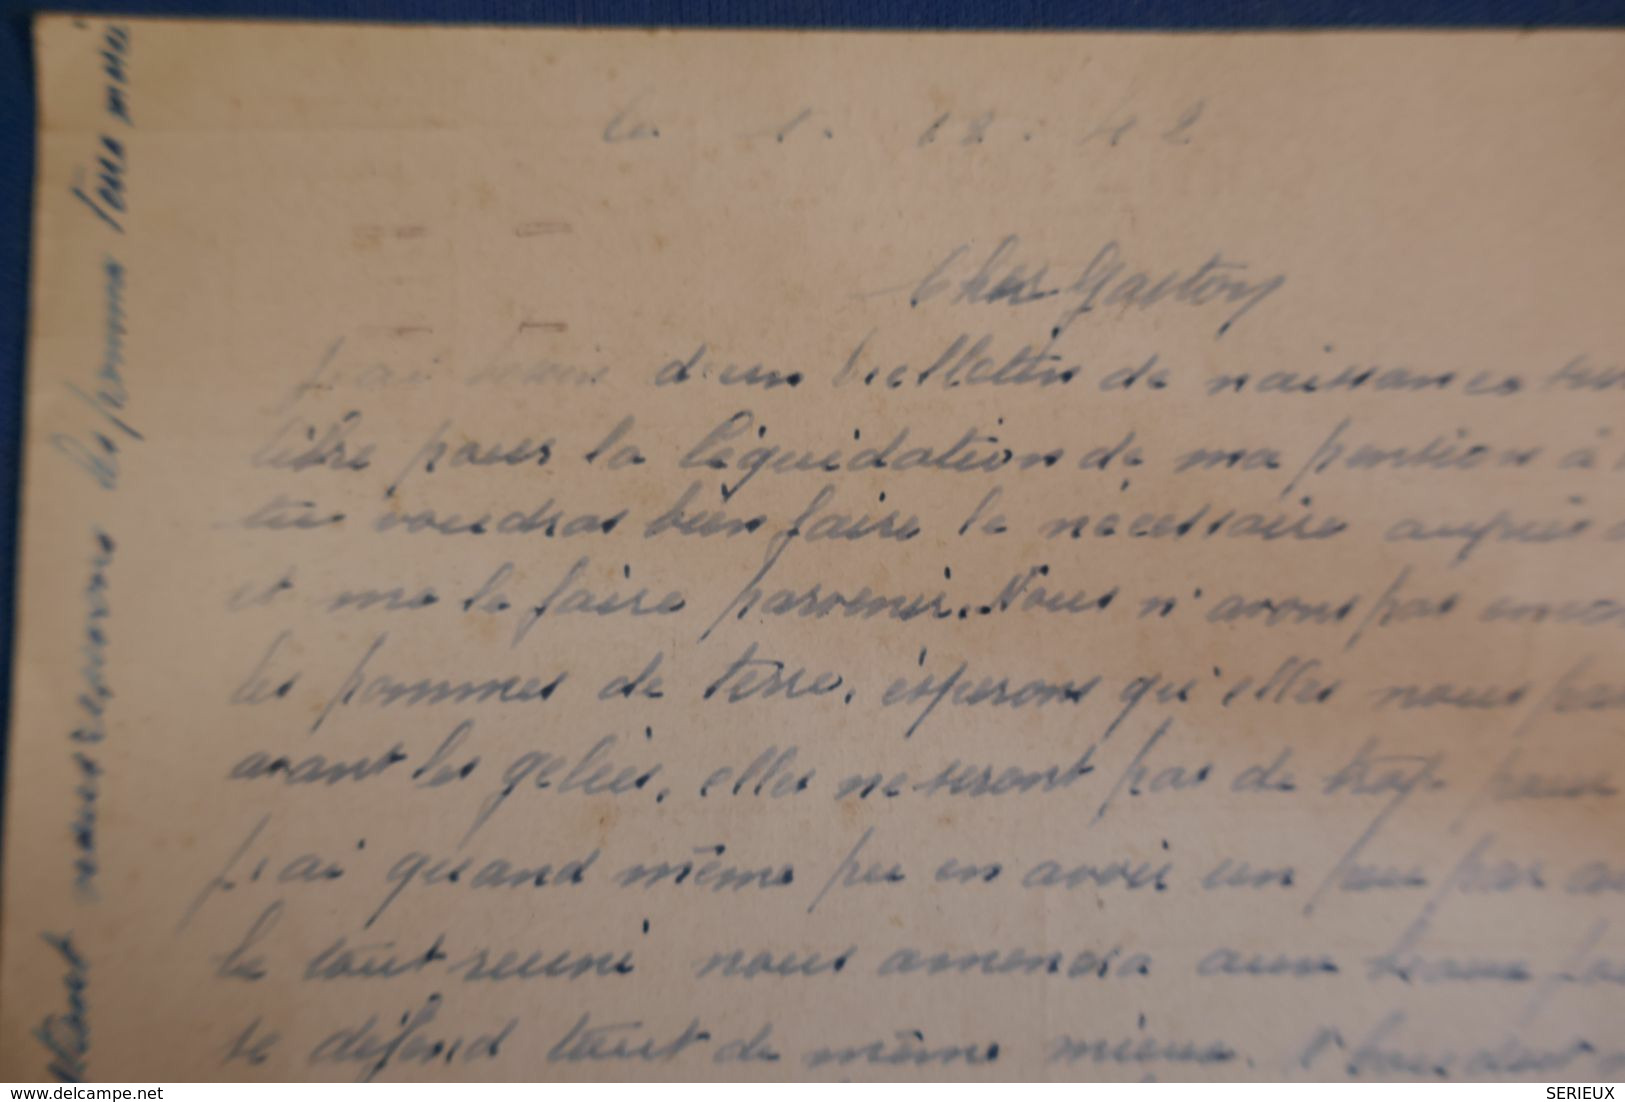 le 1. 12. 42
Cher Gaston
J'ai besoin d'un bulletin de naissance sur
libre pour la liquidation de ma pension à
tu voudras bien faire le nécessaire auprès
et me le faire parvenir. Nous n'avons pas encore
les pommes de terre, ésperons qu'elles nous
avant les gelées, elles ne seront pas de trop pour
j'ai quand même pu en avoir un peu par
le tout reuni nous amenera aux beaux
se défend tout de même mieux.
nous recevrons
delcampe.net
SERIEUX